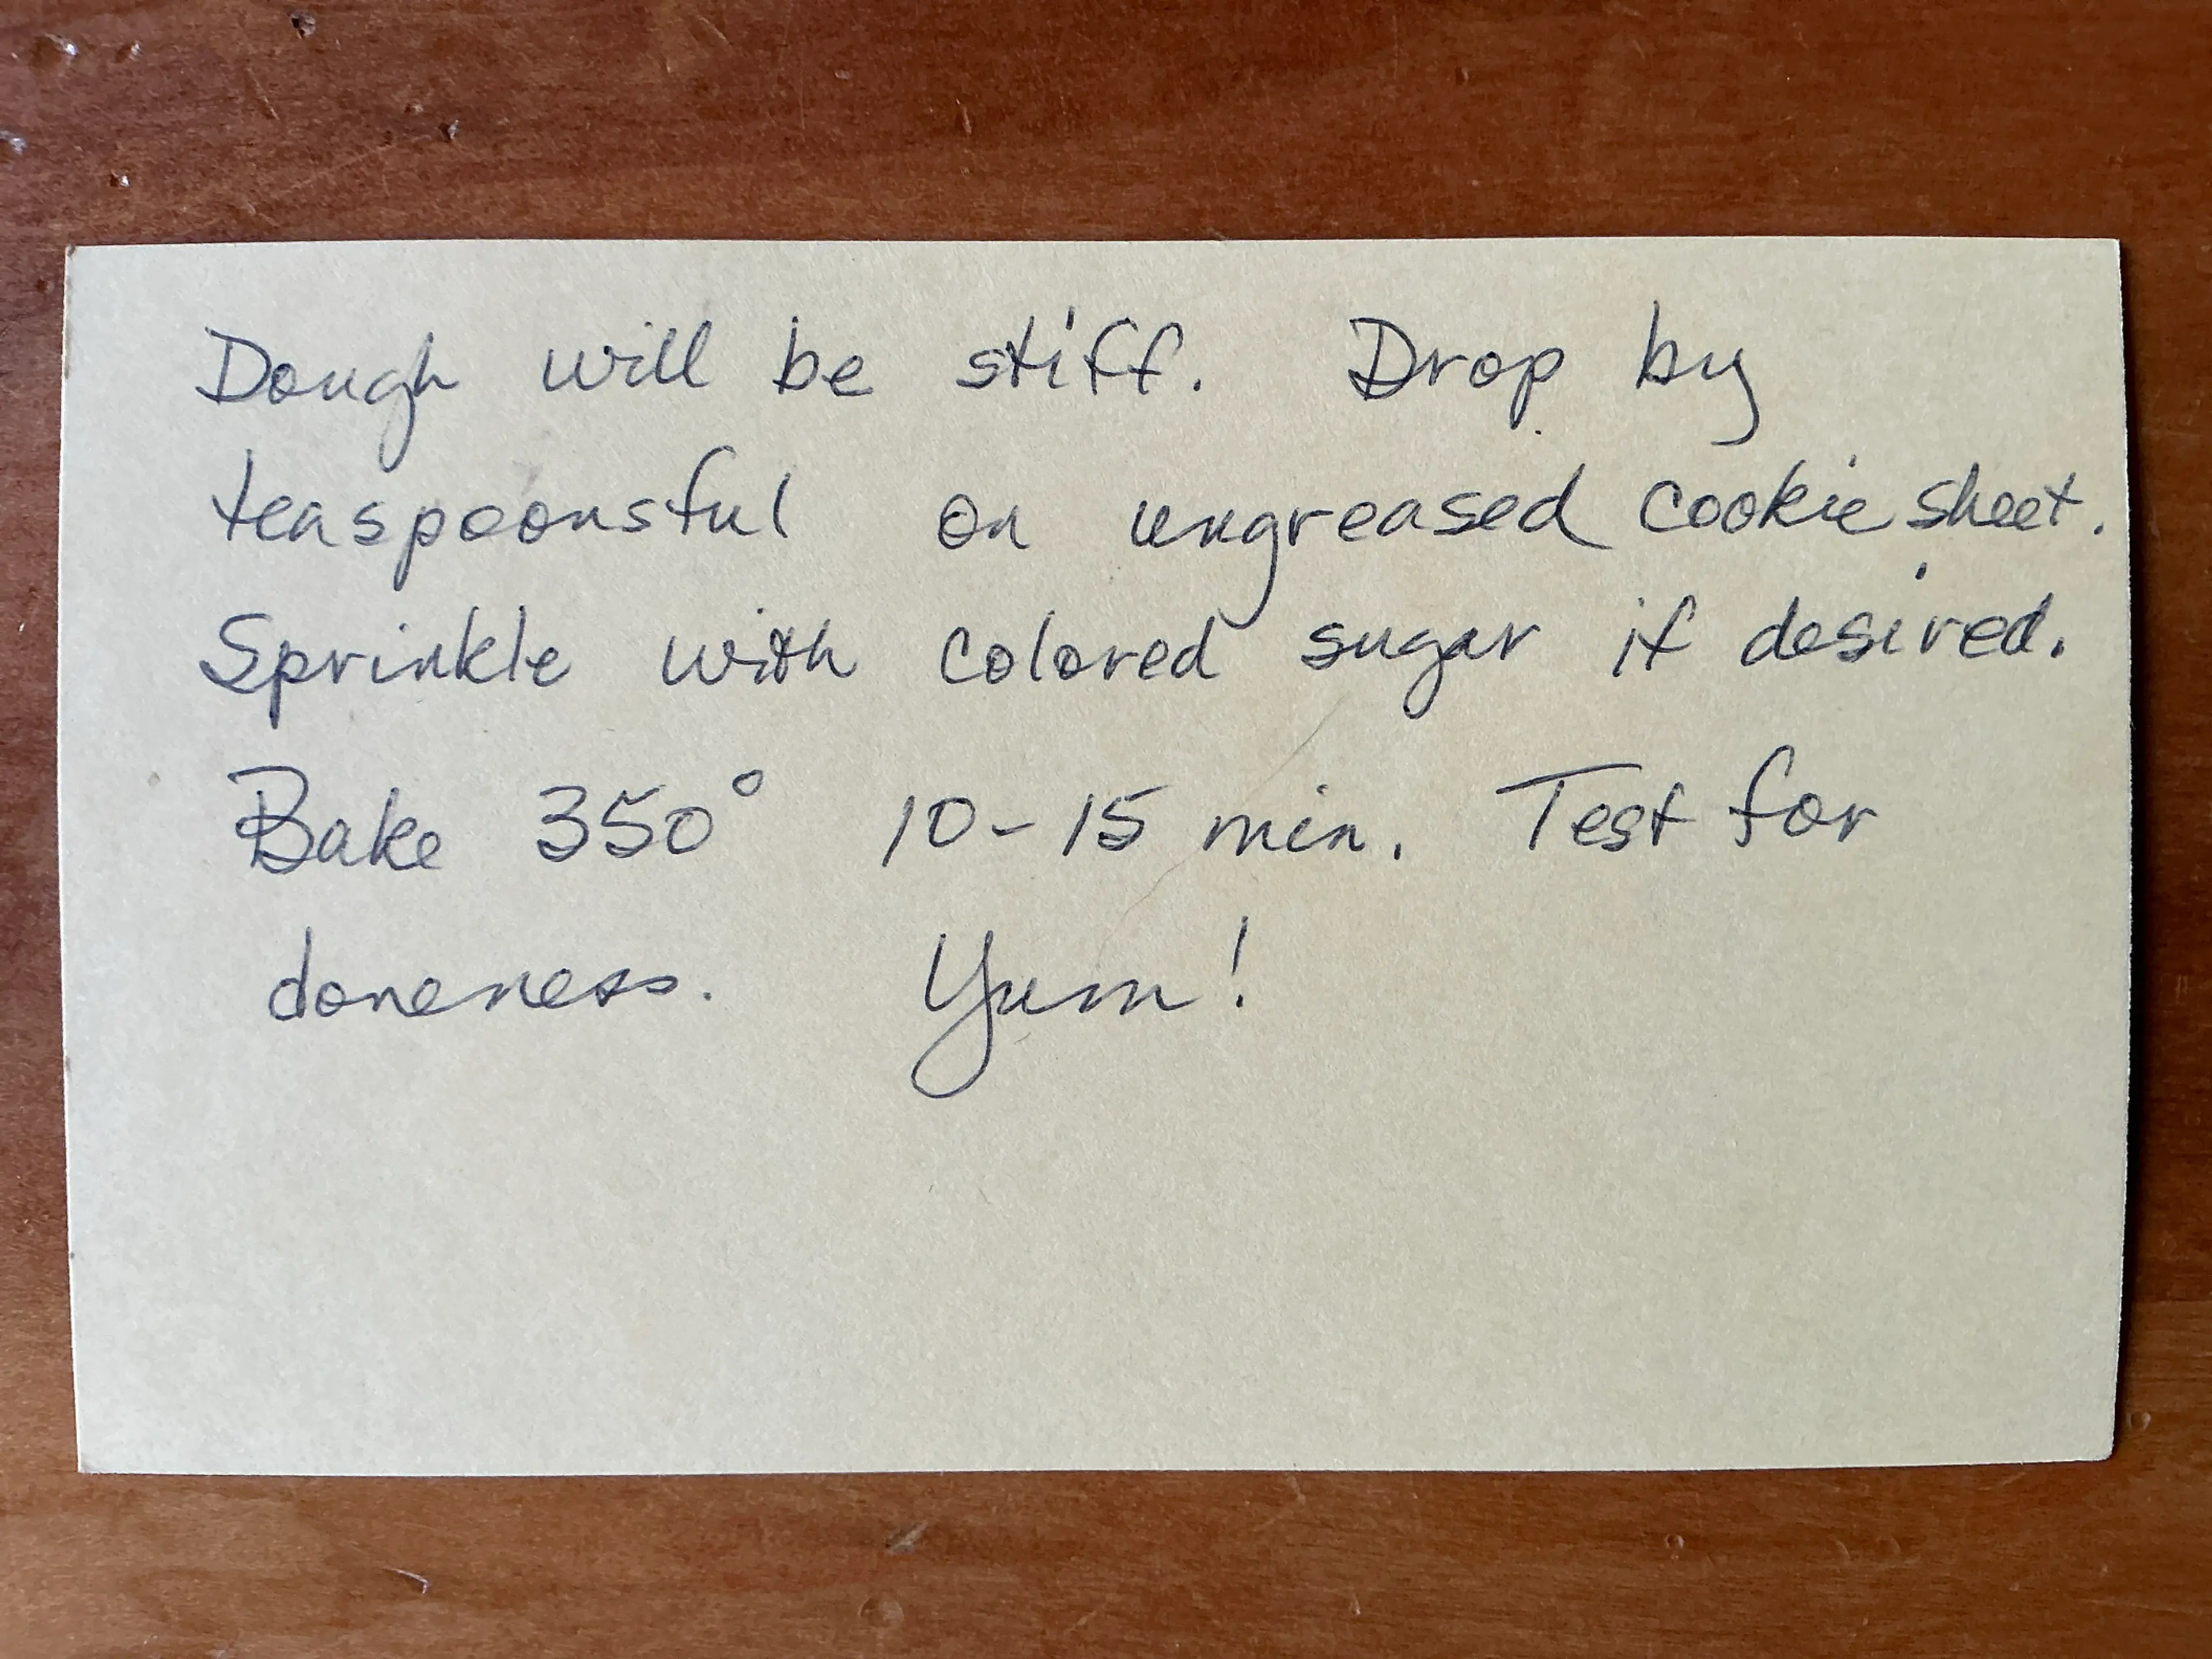 Dough will be stiff. Drop by
teaspoonsful on ungreased cookie sheet.
Sprinkle with colored sugar if desired.
Bake 350° 10-15 min. Test for
doneness. Yum!